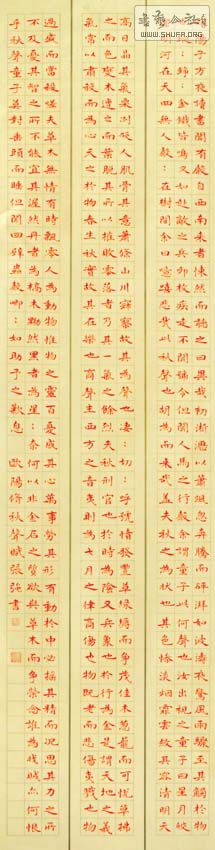 歐陽子方夜讀書聞有聲自西南来者悚然而聽之曰異哉初淅瀝以蕭颯忽奔騰而砰湃如波濤夜驚風雨驟至其觸於物
也鏦:錚:金鐵皆鳴又如赴敵之兵銜枚疾走不聞號令但聞人馬之行聲余謂童子此何聲也汝出視之童子曰星月皎
潔明河在天四無人聲:在樹間余曰噫嘻悲哉此秋聲也胡為而来哉蓋夫秋之為狀也其色惨淡煙霏雲斂其容清明天
高日晶其氣慄冽砭人肌骨其意蕭條山川寂寥故其為聲也淒:切:呼號憤發豐草綠縟而争茂佳木蔥籠而可悦草拂
之而色變木遭之而葉脱其所以摧敗零落者乃其一氣之餘烈夫秋刑官也於時為陰又兵象也於行為金是謂天地之義
氣常以肅殺而為心天之於物春生秋實故其在樂也商聲主西方之音夷則為七月之律商傷也物既老而悲傷夷戮也物
過盛而當殺嗟夫草木無情有時飄零人為動物惟物之靈百憂感其心萬事勞其形有動於中必搖其精而況思其力之所
不及憂其智之所不能宜其渥然丹者為槁木黟然黑者為星:奈何以非金石之質欲與草木而争榮念誰為之戕賊亦何恨
乎秋聲童子莫對垂頭而睡但聞四壁蟲聲唧:如助予之歎息 歐陽修秋聲賦張強書
書法公社
WWW.SHUFR.ORG